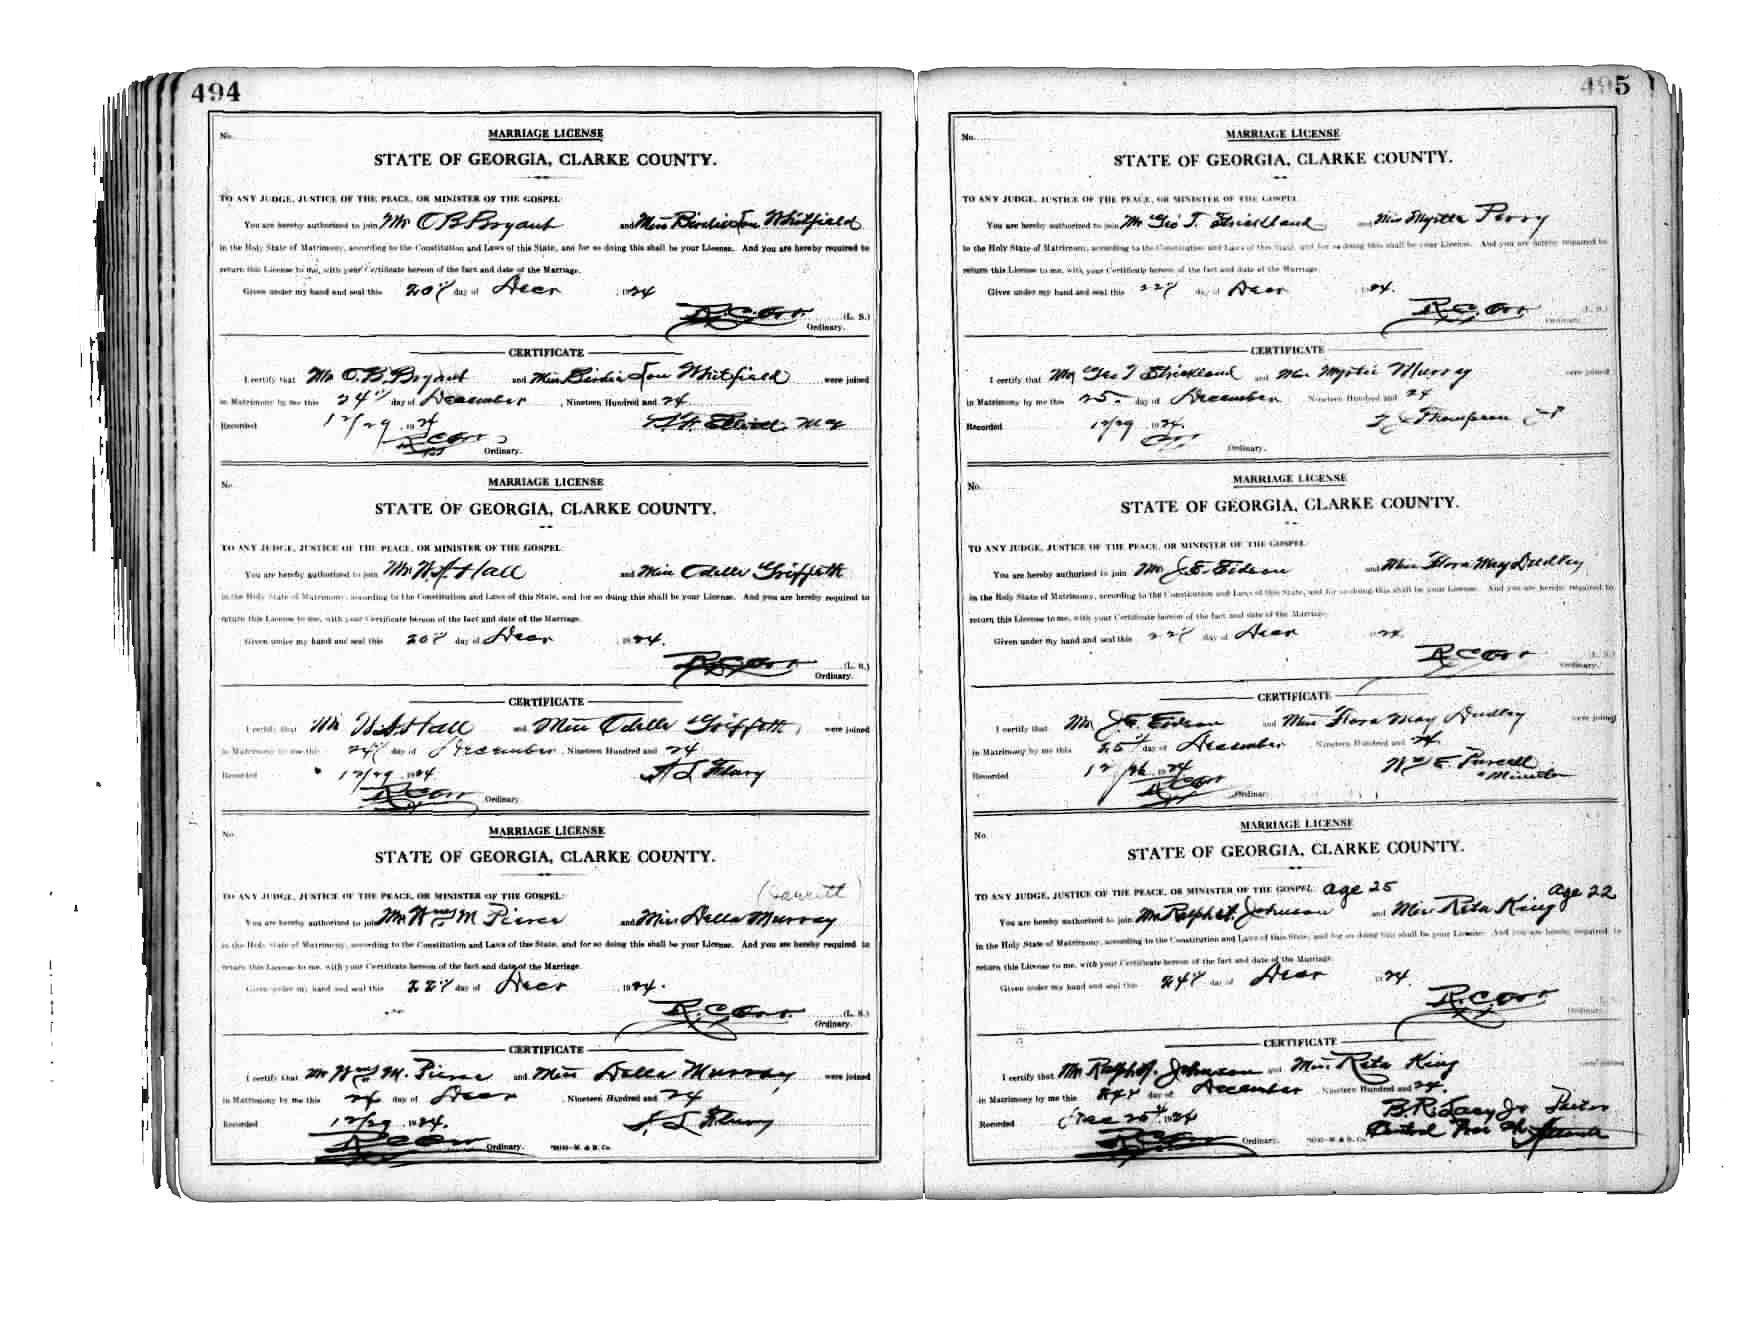 494
No.
MARRIAGE LICENSE
STATE OF GEORGIA, CLARKE COUNTY.
TO ANY JUDGE, JUSTICE OF THE PEACE, OR MINISTER OF THE GOSPEL:
You are hereby authorized to join Mr O B Bryant and Miss Birdie Lou Whitfield
in the Holy State of Matrimony, according to the Constitution and Laws of this State, and for so doing this shall be your License. And you are hereby required to
return this License to me, with your Certificate hereon of the fact and date of the Marriage.
Given under my hand and seal this 20 day of Decr 1924
R.C. Orr (L. S.)
Ordinary.
CERTIFICATE
I certify that Mr O.B. Bryant and Miss Birdie Lou Whitfield were joined
in Matrimony by me this 24 day of December, Nineteen Hundred and 24
Recorded 12/29 1924
R C Orr Ordinary.
No.
MARRIAGE LICENSE
STATE OF GEORGIA, CLARKE COUNTY.
TO ANY JUDGE, JUSTICE OF THE PEACE, OR MINISTER OF THE GOSPEL:
You are hereby authorized to join Mr W.A. Hall and Miss Odelle Griffeth
in the Holy State of Matrimony, according to the Constitution and Laws of this State, and for so doing this shall be your License. And you are hereby required to
return this License to me, with your Certificate hereon of the fact and date of the Marriage.
Given under my hand and seal this 20 day of Decr 1924.
R C Orr (L. S.)
Ordinary.
CERTIFICATE
I certify that Mr W.A. Hall and Miss Odelle Griffeth were joined
in Matrimony by me this 24 day of December, Nineteen Hundred and 24
Recorded 12/29 1924 Flury
R C Orr Ordinary.
No.
MARRIAGE LICENSE
STATE OF GEORGIA, CLARKE COUNTY.
TO ANY JUDGE, JUSTICE OF THE PEACE, OR MINISTER OF THE GOSPEL:
You are hereby authorized to join Mr Wm M Pierce and Miss Della Murray
in the Holy State of Matrimony, according to the Constitution and Laws of this State, and for so doing this shall be your License. And you are hereby required to
return this License to me, with your Certificate hereon of the fact and date of the Marriage.
Given under my hand and seal this 22 day of Decr 1924.
R.C. Orr. (L. S.)
Ordinary.
CERTIFICATE
I certify that Mr Wm M. Pierce and Miss Della Murray were joined
in Matrimony by me this 24 day of Decr, Nineteen Hundred and 24
Recorded 12/29 1924. Flury
R C Orr Ordinary.
495
No.
MARRIAGE LICENSE
STATE OF GEORGIA, CLARKE COUNTY.
TO ANY JUDGE, JUSTICE OF THE PEACE, OR MINISTER OF THE GOSPEL:
You are hereby authorized to join Mr Geo T. Strickland and Miss Myrtle Perry
in the Holy State of Matrimony, according to the Constitution and Laws of this State, and for so doing this shall be your License. And you are hereby required to
return this License to me, with your Certificate hereon of the fact and date of the Marriage.
Given under my hand and seal this 22 day of Decr 1924.
R.C. Orr (L. S.)
Ordinary.
CERTIFICATE
I certify that Mr Geo T Strickland and Miss Myrtie Murray were joined
in Matrimony by me this 25 day of December Nineteen Hundred and 24
Recorded 12/29 1924. Thompson J P
Orr Ordinary.
No.
MARRIAGE LICENSE
STATE OF GEORGIA, CLARKE COUNTY.
TO ANY JUDGE, JUSTICE OF THE PEACE, OR MINISTER OF THE GOSPEL:
You are hereby authorized to join Mr J.E. Eidson and Miss Flora May Dudley
in the Holy State of Matrimony, according to the Constitution and Laws of this State, and for so doing this shall be your License. And you are hereby required to
return this License to me, with your Certificate hereon of the fact and date of the Marriage.
Given under my hand and seal this 22 day of Decr 1924.
R C Orr (L. S.)
Ordinary.
CERTIFICATE
I certify that Mr J.E. Eidson and Miss Flora May Dudley were joined
in Matrimony by me this 25 day of December Nineteen Hundred and 24.
Recorded 12/26 1924 Wm E. Purcell
Minister
R C Orr Ordinary.
No.
MARRIAGE LICENSE
STATE OF GEORGIA, CLARKE COUNTY.
TO ANY JUDGE, JUSTICE OF THE PEACE, OR MINISTER OF THE GOSPEL: age 25 age 22
You are hereby authorized to join Mr Ralph A. Johnson and Miss Rita King
in the Holy State of Matrimony, according to the Constitution and Laws of this State, and for so doing this shall be your License. And you are hereby required to
return this License to me, with your Certificate hereon of the fact and date of the Marriage.
Given under my hand and seal this 24 day of Decr 1924.
R.C. Orr
Ordinary.
CERTIFICATE
I certify that Mr Ralph A. Johnson and Miss Rita King were joined
in Matrimony by me this 24 day of December Nineteen Hundred and 24.
Recorded Dec 25 1924 B. R. Lacy Jr Pastor
Central Pres Ch Atlanta
R C Orr Ordinary.